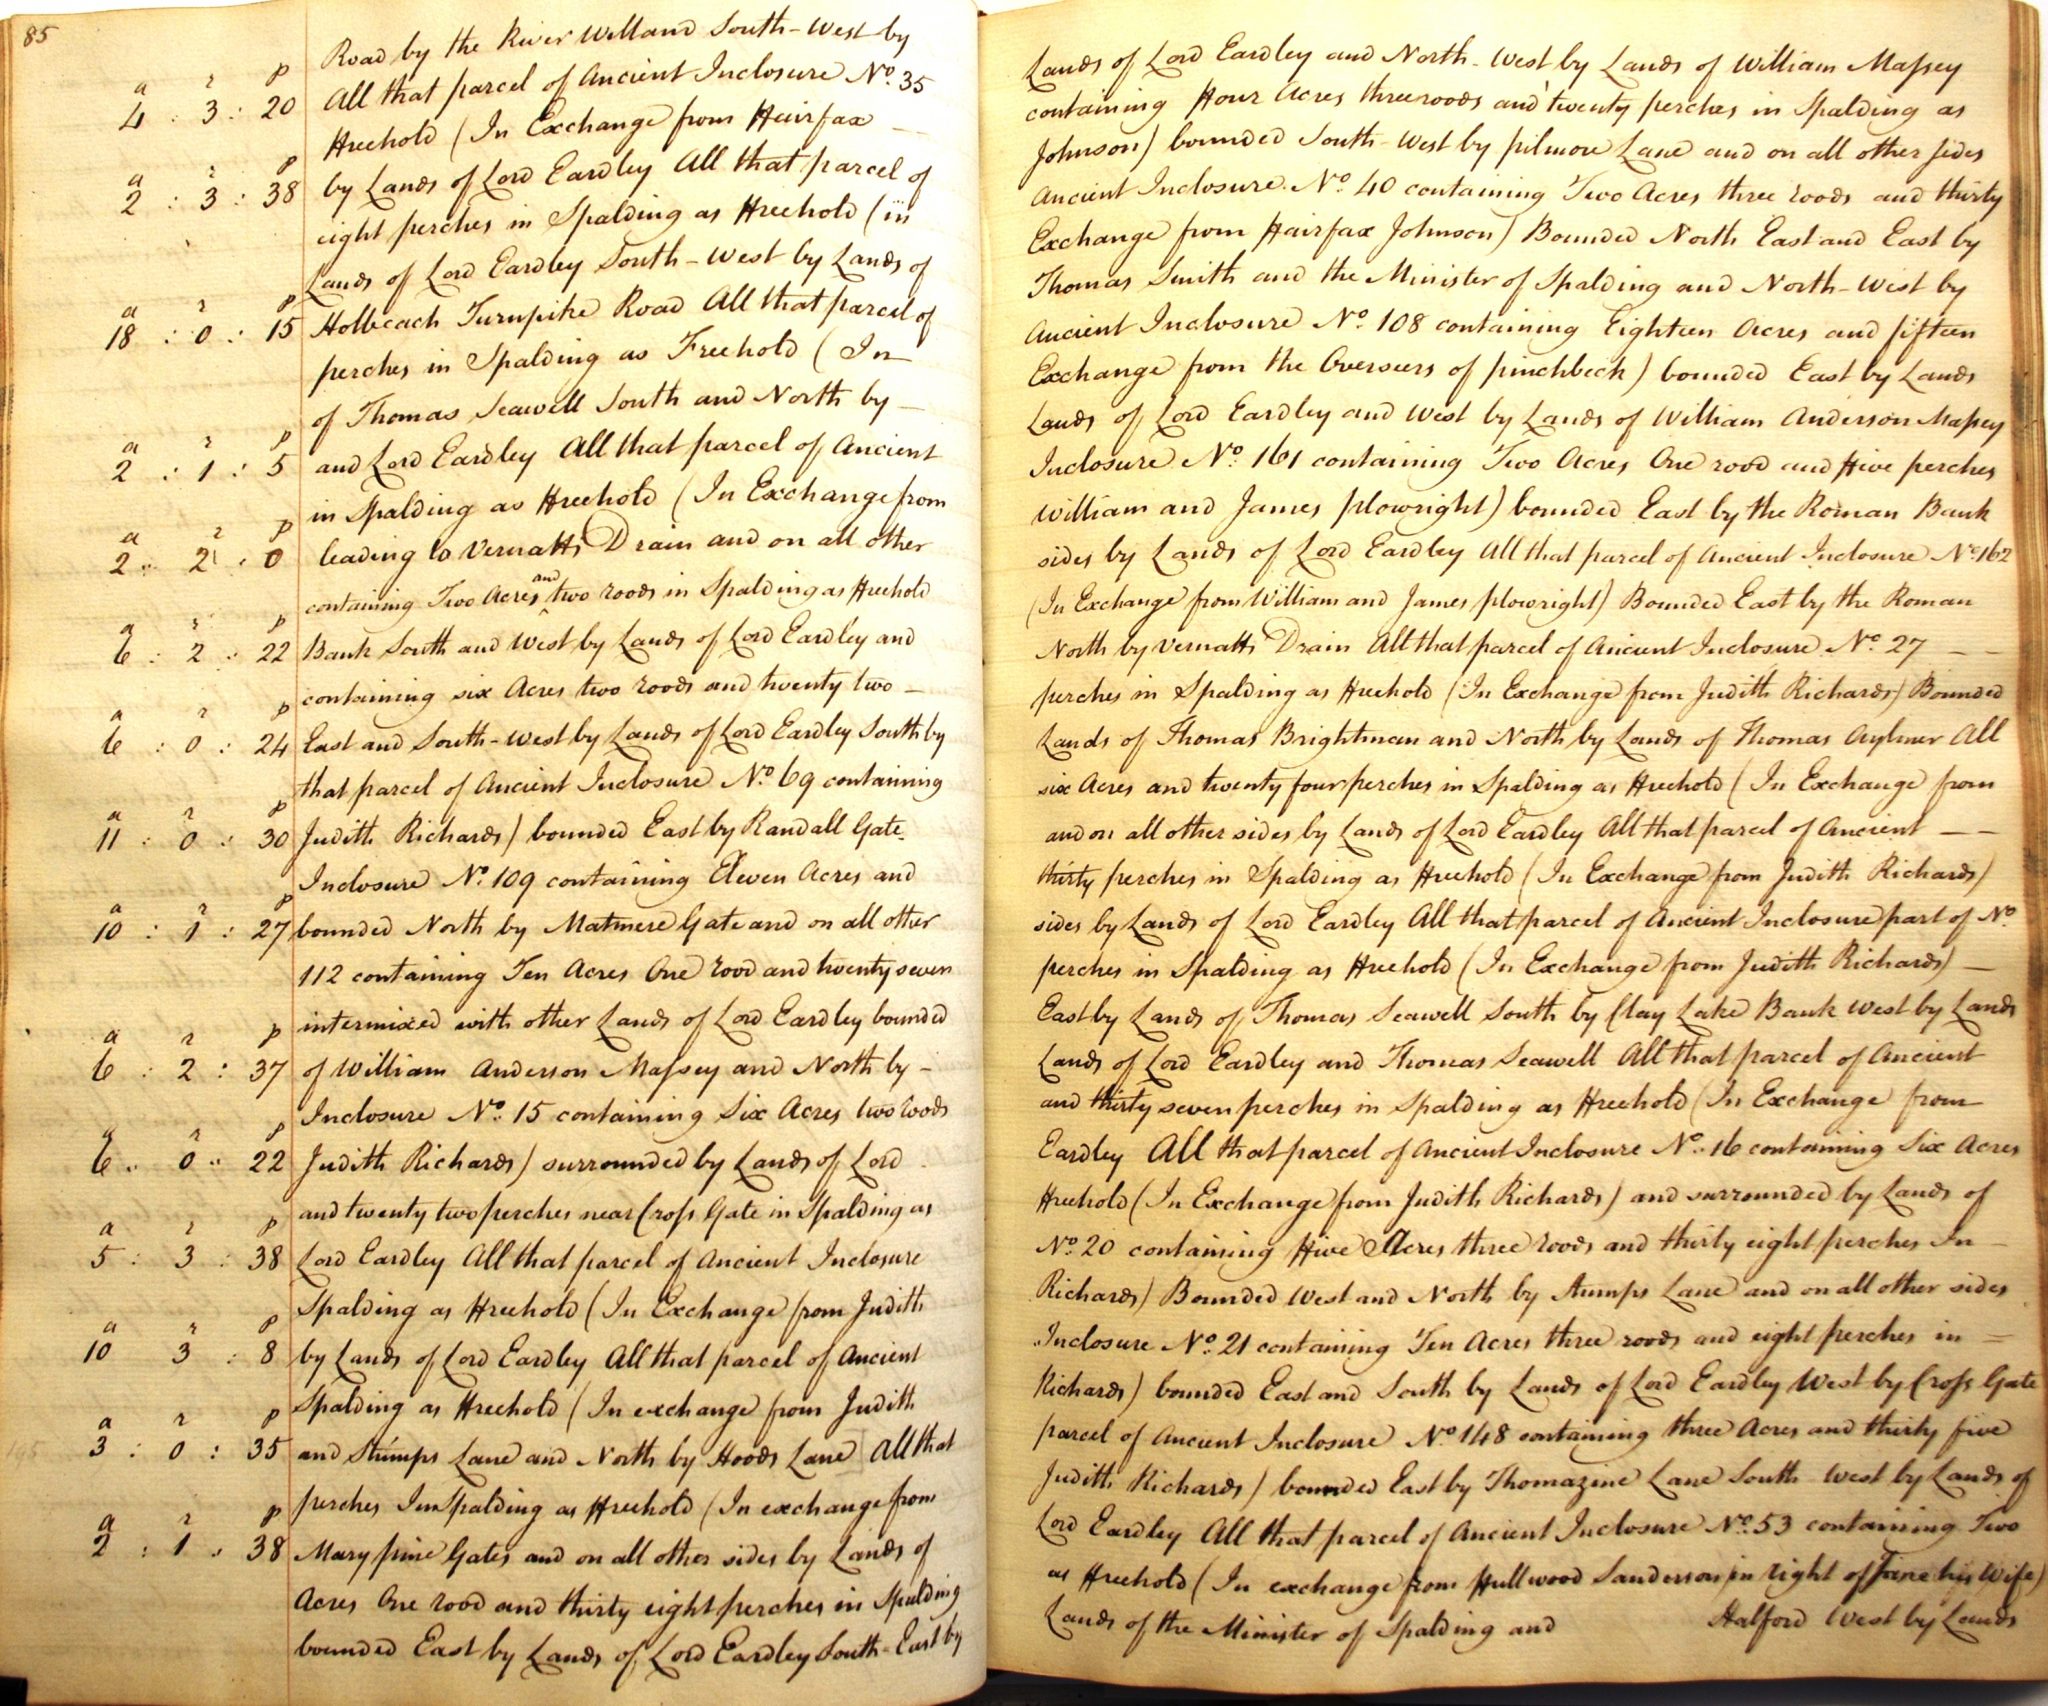 85
Road by the River Welland South-West by Lands of Lord Eardley and North-West by Lands of William Massey
a r p
4 : 3 : 20 All that parcel of Ancient Inclosure No. 35 containing Four Acres three roods and twenty perches in Spalding as
Freehold (In Exchange from Fairfax — Johnson) bounded South-West by pilmore Lane and on all other sides
a r p
2 : 3 : 38 by Lands of Lord Eardley All that parcel of Ancient Inclosure No. 40 containing Two Acres three roods and thirty
eight perches in Spalding as Freehold (in Exchange from Fairfax Johnson) Bounded North East and East by
Lands of Lord Eardley South-West by Lands of Thomas Smith and the Minister of Spalding and North-West by
a r p
18 : 0 : 15 Holbeach Turnpike Road All that parcel of Ancient Inclosure No. 108 containing Eighteen Acres and fifteen
perches in Spalding as Freehold (In Exchange from the Overseers of pinchbeck) bounded East by Lands
of Thomas Seawell South and North by — Lands of Lord Eardley and West by Lands of William Anderson Massey
a r p
2 : 1 : 5 and Lord Eardley All that parcel of Ancient Inclosure No. 161 containing Two Acres One rood and Five perches
in Spalding as Freehold (In Exchange from William and James plowright) bounded East by the Roman Bank
a r p
2 : 2 : 0 leading to Vernatts Drain and on all other sides by Lands of Lord Eardley All that parcel of Ancient Inclosure No. 162
containing Two Acres and two roods in Spalding as Freehold (In Exchange from William and James plowright) Bounded East by the Roman
a r p
6 : 2 : 22 Bank South and West by Lands of Lord Eardley and North by Vernatts Drain All that parcel of Ancient Inclosure No. 27 — —
containing six Acres two roods and twenty two — perches in Spalding as Freehold (In Exchange from Judith Richards) Bounded
a r p
6 : 0 : 24 East and South-West by Lands of Lord Eardley South by Lands of Thomas Brightman and North by Lands of Thomas Aylmer All
that parcel of Ancient Inclosure No. 69 containing six Acres and twenty four perches in Spalding as Freehold (In Exchange from
a r p
11 : 0 : 30 Judith Richards) bounded East by Randall Gate and on all other sides by Lands of Lord Eardley All that parcel of Ancient — —
Inclosure No. 109 containing Eleven Acres and thirty perches in Spalding as Freehold (In Exchange from Judith Richards)
a r p
10 : 1 : 27 bounded North by Matmere Gate and on all other sides by Lands of Lord Eardley All that parcel of Ancient Inclosure part of No.
112 containing Ten Acres One rood and twenty seven perches in Spalding as Freehold (In Exchange from Judith Richards) —
intermixed with other Lands of Lord Eardley bounded East by Lands of Thomas Seawell South by Clay Lake Bank West by Lands
a r p
6 : 2 : 37 of William Anderson Massey and North by — Lands of Lord Eardley and Thomas Seawell All that parcel of Ancient
Inclosure No. 15 containing Six Acres two roods and thirty seven perches in Spalding as Freehold (In Exchange from
a r p
6 : 0 : 22 Judith Richards) surrounded by Lands of Lord Eardley All that parcel of Ancient Inclosure No. 16 containing Six Acres
and twenty two perches near Cross Gate in Spalding as Freehold (In Exchange from Judith Richards) and surrounded by Lands of
a r p
5 : 3 : 38 Lord Eardley All that parcel of Ancient Inclosure No. 20 containing Five Acres three roods and thirty eight perches In
Spalding as Freehold (In Exchange from Judith Richards) Bounded West and North by Stumps Lane and on all other sides
a r p
10 3 : 8 by Lands of Lord Eardley All that parcel of Ancient Inclosure No. 21 containing Ten Acres three roods and eight perches in —
Spalding as Freehold (In exchange from Judith Richards) bounded East and South by Lands of Lord Eardley West by Cross Gate
a r p
3 : 0 : 35 and Stumps Lane and North by Hoods Lane All that parcel of Ancient Inclosure No. 148 containing three Acres and thirty five
perches In Spalding as Freehold (In exchange from Judith Richards) bounded East by Thomazine Lane South West by Lands of
a r p
2 : 1 : 38 Mary pine Gates and on all other sides by Lands of Lord Eardley All that parcel of Ancient Inclosure No. 53 containing Two
Acres One rood and thirty eight perches in Spalding as Freehold (In exchange from Fullwood Sanderson in right of Jane his Wife)
bounded East by Lands of Lord Eardley South-East by Lands of the Minister of Spalding and Halford West by Lands